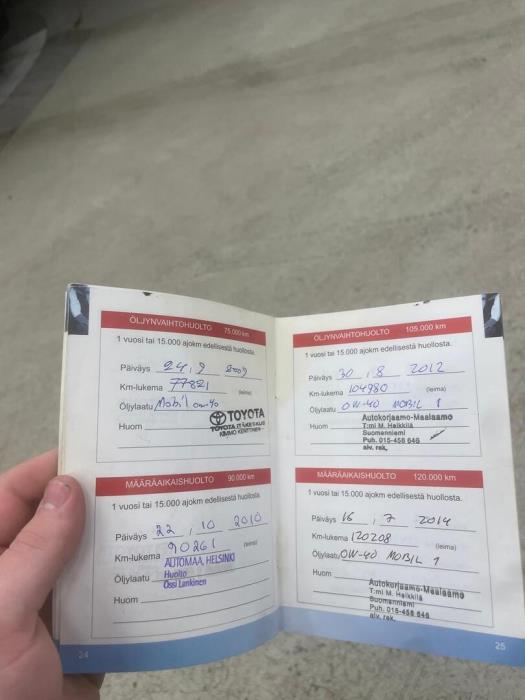 ÖLJYNVAIHTOHUOLTO 75.000 km
1 vuosi tai 15.000 ajokm edellisestä huollosta.
Päiväys 24, 9 2009
Km-lukema 77821 (leima)
Öljylaatu Mobil 0w-40
Huom
TOYOTA
TOYOTA ITÄKESKUS
KIMMO KERTTINEN
MÄÄRÄAIKAISHUOLTO 90.000 km
1 vuosi tai 15.000 ajokm edellisestä huollosta.
Päiväys 22, 10 2010
Km-lukema 90261 (leima)
AUTOMAA, HELSINKI
Öljylaatu Huolto
Ossi Lankinen
Huom
24
ÖLJYNVAIHTOHUOLTO 105.000 km
1 vuosi tai 15.000 ajokm edellisestä huollosta.
Päiväys 30, 8 2012
Km-lukema 104980 (leima)
Öljylaatu 0W-40 MOBIL 1
Huom
Autokorjaamo-Maalaamo
T:mi M. Heikkilä
Suomenniemi
Puh. 015-458 646
alv. rek.
MÄÄRÄAIKAISHUOLTO 120.000 km
1 vuosi tai 15.000 ajokm edellisestä huollosta.
Päiväys 16, 7 2014
Km-lukema 120208 (leima)
Öljylaatu 0W-40 MOBIL 1
Huom
Autokorjaamo-Maalaamo
T:mi M. Heikkilä
Suomenniemi
Puh. 015-458 646
alv. rek.
25